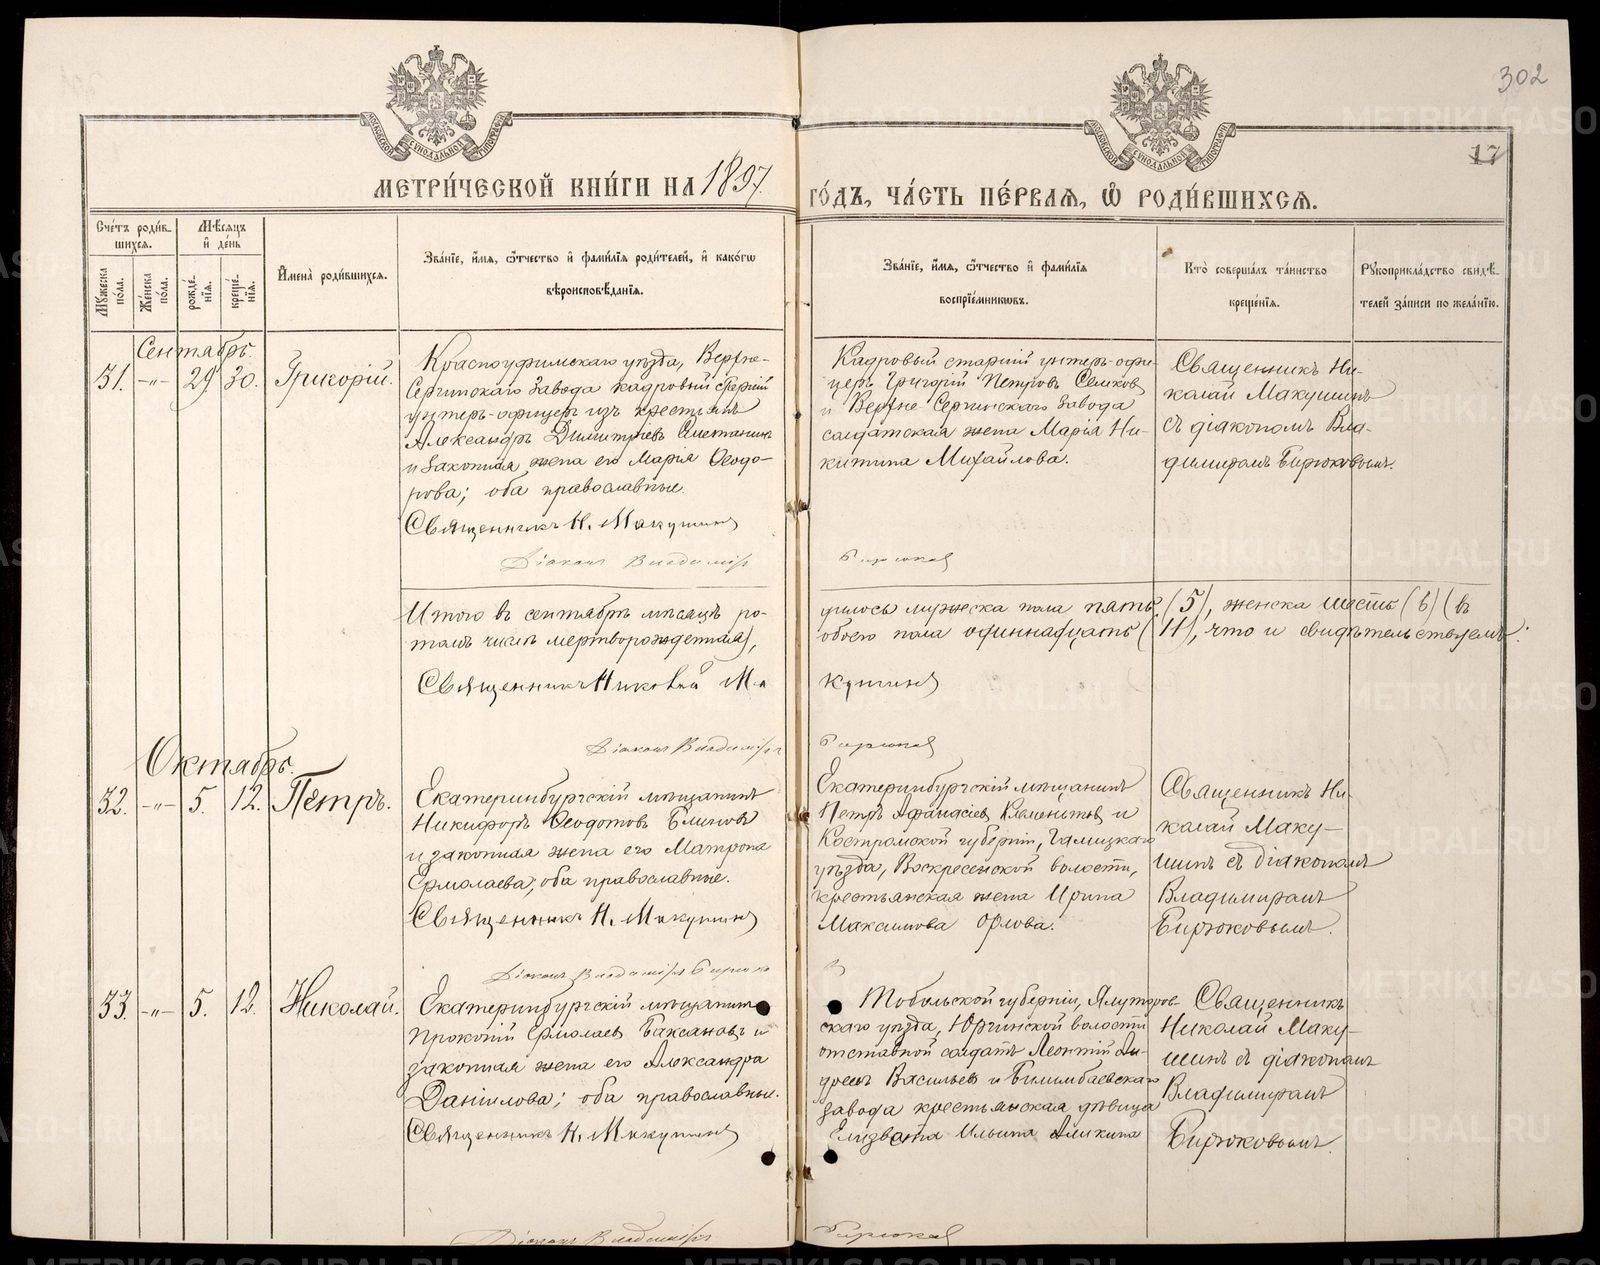 302
17
МЕТРИ́ЧЕСКОЙ КНИ́ГИ НА 1897 ГО́ДЪ, ЧА́СТЬ ПЕ́РВАЯ, Ѡ РОДИ́ВШИХСЯ.
Сче́тъ роди́вшихся.
Мѣ́сяцъ и́ де́нь
Му́жеска по́ла.
Же́нска по́ла.
рожде́нїя.
креще́нїя.
И҆мена̀ роди́вшихся.
Зва́нїе, и҆́мя, ѻ҆́тчество и҆ фами́лїя роди́телей, и҆ како́гѡ вѣроисповѣ́данїя.
Зва́нїе, и҆́мя, ѻ҆́тчество и҆ фами́лїя воспрїе́мниковъ.
Кто̀ соверша́лъ та́инство креще́нїя.
Рꙋкоприкла́дство свидѣ́телей за́писи по жела́нїю.
Сентябрь.
31. -"- 29. 30. Григорій.
Красноуфимскаго уѣзда, Верхне-
Сергинскаго завода кадровый старшій
унтеръ-офицеръ изъ крестьянъ
Александръ Димитріевъ Сметанинъ
и законная жена его Марія Ѳеодо-
рова; оба православные.
Священникъ Н. Макушинъ
Діаконъ Владиміръ Бирюковъ
Кадровый старшій унтеръ-офи-
церъ Григорій Петровъ
и Верхне-Сергинскаго завода
солдатская жена Марія Ни-
китина Михайлова.
Священникъ Ни-
колай Макушинъ
съ діакономъ Вла-
димиромъ Бирюковымъ.
Итого въ сентябрѣ мѣсяцѣ ро-
дилось мужеска пола пять (5), женска шесть (6) (въ
томъ числѣ мертворожденная),
обоего пола одиннадцать (11), что и свидѣтельствуемъ:
Священникъ Николай Макушинъ
Діаконъ Владиміръ Бирюковъ
Октябрь.
32. -"- 5. 12. Петръ.
Екатеринбургскій мѣщанинъ
Никифоръ Ѳеодотовъ Блиновъ
и законная жена его Матрона
Ермолаева; оба православные.
Священникъ Н. Макушинъ
Діаконъ Владиміръ Бирюковъ
Екатеринбургскій мѣщанинъ
Петръ Афанасіевъ Клементьевъ и
Костромской губерніи, Галицкаго
уѣзда, Воскресенской волости,
крестьянская жена Ирина
Максимова Орлова.
Священникъ Ни-
колай Маку-
шинъ съ діакономъ
Владимиромъ
Бирюковымъ.
33. -"- 5. 12. Николай.
Екатеринбургскій мѣщанинъ
Прокопій Ермолаевъ Баксановъ и
законная жена его Александра
Данилова; оба православные.
Священникъ Н. Макушинъ
Діаконъ Владиміръ Бирюковъ
Тобольской губерніи, Ялуторов-
скаго уѣзда, Юргинской волости
отставной солдатъ Леонтій Ан-
дреевъ Васильевъ и Билимбаевскаго
завода крестьянская дѣвица
Елизвета Ильина Аликина
Священникъ
Николай Маку-
шинъ съ діакономъ
Владимиромъ
Бирюковымъ.
METRIKI.GASO-URAL.RU